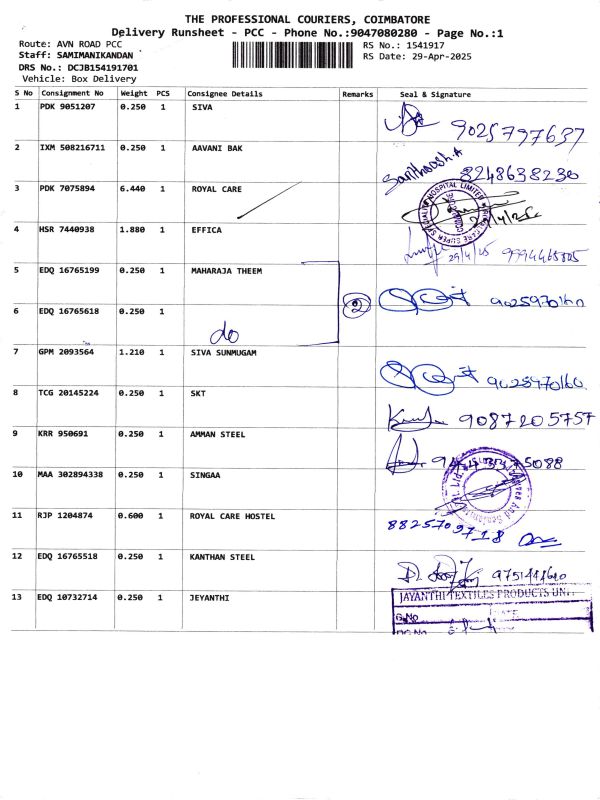 THE PROFESSIONAL COURIERS, COIMBATORE
Delivery Runsheet - PCC - Phone No.:9047080280 - Page No.:1
Route: AVN ROAD PCC
RS No.: 1541917
Staff: SAMIMANIKANDAN
RS Date: 29-Apr-2025
DRS No.: DCJB154191701
Vehicle: Box Delivery
S No Consignment No Weight PCS Consignee Details Remarks Seal & Signature
1 PDK 9051207 0.250 1 SIVA
9025797637
2 IXM 508216711 0.250 1 AAVANI BAK
Santhoosh
8248638230
3 PDK 7075894 6.440 1 ROYAL CARE
4 HSR 7440938 1.880 1 EFFICA
29/4/25
5 EDQ 16765199 0.250 1 MAHARAJA THEEM
2
6 EDQ 16765618 0.250 1
do
7 GPM 2093564 1.210 1 SIVA SUNMUGAM
8 TCG 20145224 0.250 1 SKT
9087205757
9 KRR 950691 0.250 1 AMMAN STEEL
10 MAA 302894338 0.250 1 SINGAA
11 RJP 1204874 0.600 1 ROYAL CARE HOSTEL
8825709718
12 EDQ 16765518 0.250 1 KANTHAN STEEL
13 EDQ 10732714 0.250 1 JEYANTHI
JAYANTHI TEXTILES PRODUCTS UNIT
G.No
DATE